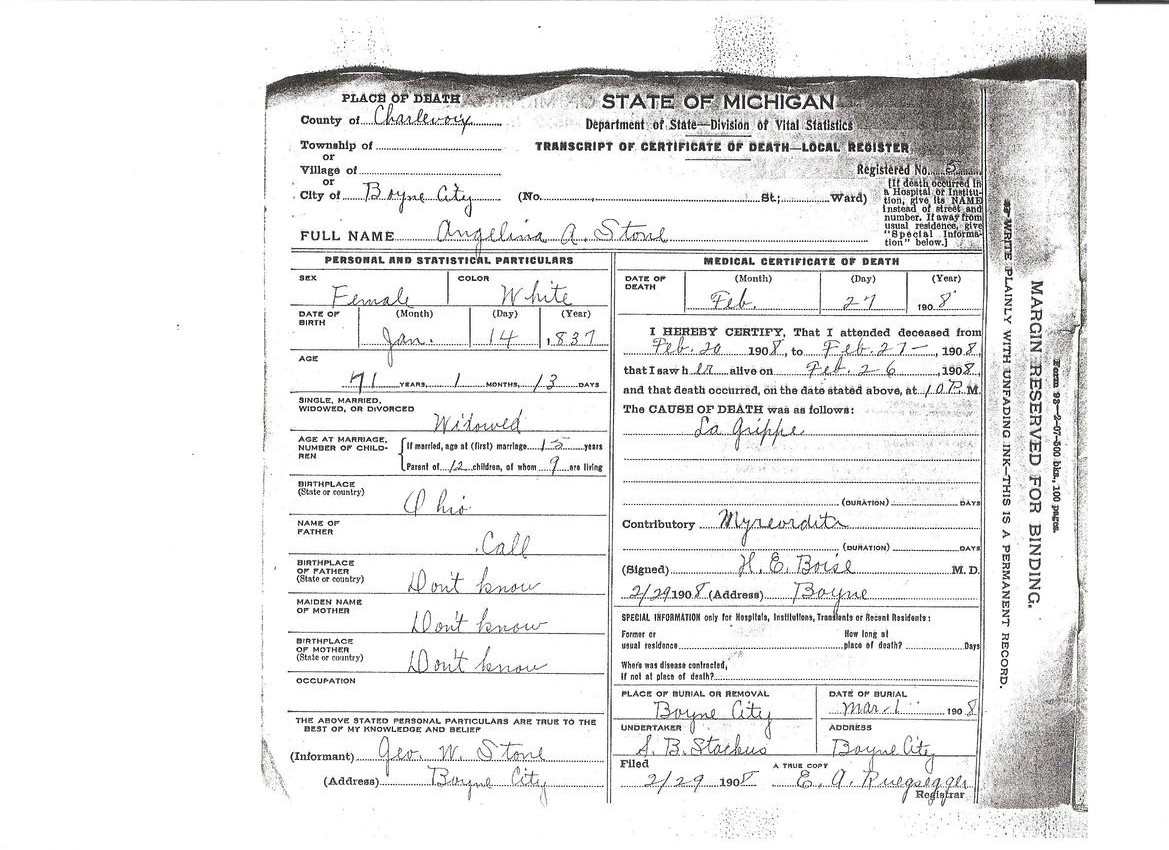 PLACE OF DEATH
County of Charlevoix
Township of
or
Village of
or
City of Boyne City
STATE OF MICHIGAN
Department of State—Division of Vital Statistics
TRANSCRIPT OF CERTIFICATE OF DEATH—LOCAL REGISTER
Registered No. 5
(No. , St.; Ward)
[If death occurred in
a Hospital or Institu-
tion, give its NAME
instead of street and
number. If away from
usual residence, give
"Special Informa-
tion" below.]
FULL NAME Angelina A. Stone
PERSONAL AND STATISTICAL PARTICULARS
SEX
Female
COLOR
White
DATE OF
BIRTH
(Month) (Day) (Year)
Jan. 14 , 1837
AGE
71 YEARS, 1 MONTHS, 13 DAYS
SINGLE, MARRIED,
WIDOWED, OR DIVORCED
Widowed
AGE AT MARRIAGE,
NUMBER OF CHILD-
REN
If married, age at (first) marriage 15 years
Parent of 12 children, of whom 9 are living
BIRTHPLACE
(State or country)
Ohio
NAME OF
FATHER
Call
BIRTHPLACE
OF FATHER
(State or country)
Don't know
MAIDEN NAME
OF MOTHER
Don't know
BIRTHPLACE
OF MOTHER
(State or country)
Don't know
OCCUPATION
THE ABOVE STATED PERSONAL PARTICULARS ARE TRUE TO THE
BEST OF MY KNOWLEDGE AND BELIEF
(Informant) Geo. W. Stone
(Address) Boyne City
MEDICAL CERTIFICATE OF DEATH
DATE OF
DEATH
(Month) (Day) (Year)
Feb. 27 1908
I HEREBY CERTIFY, That I attended deceased from
Feb. 20 1908, to Feb. 27 — , 1908,
that I saw her alive on Feb. 26 , 1908,
and that death occurred, on the date stated above, at 10 P. M.
The CAUSE OF DEATH was as follows:
La Grippe
(DURATION) DAYS
Contributory
(DURATION) DAYS
(Signed) H. E. Boise M. D.
2/29 1908 (Address) Boyne
SPECIAL INFORMATION only for Hospitals, Institutions, Transients or Recent Residents:
Former or
usual residence
How long at
place of death? Days
Where was disease contracted,
If not at place of death?
PLACE OF BURIAL OR REMOVAL
Boyne City
DATE OF BURIAL
Mar-1 1908
UNDERTAKER
S. B. Stackus
ADDRESS
Boyne City
Filed
2/29 1908
A TRUE COPY
E. A. Ruegsegger
Registrar
WRITE PLAINLY WITH UNFADING INK—THIS IS A PERMANENT RECORD.
MARGIN RESERVED FOR BINDING.
Form 93—2-07-500 bks., 100 pages.